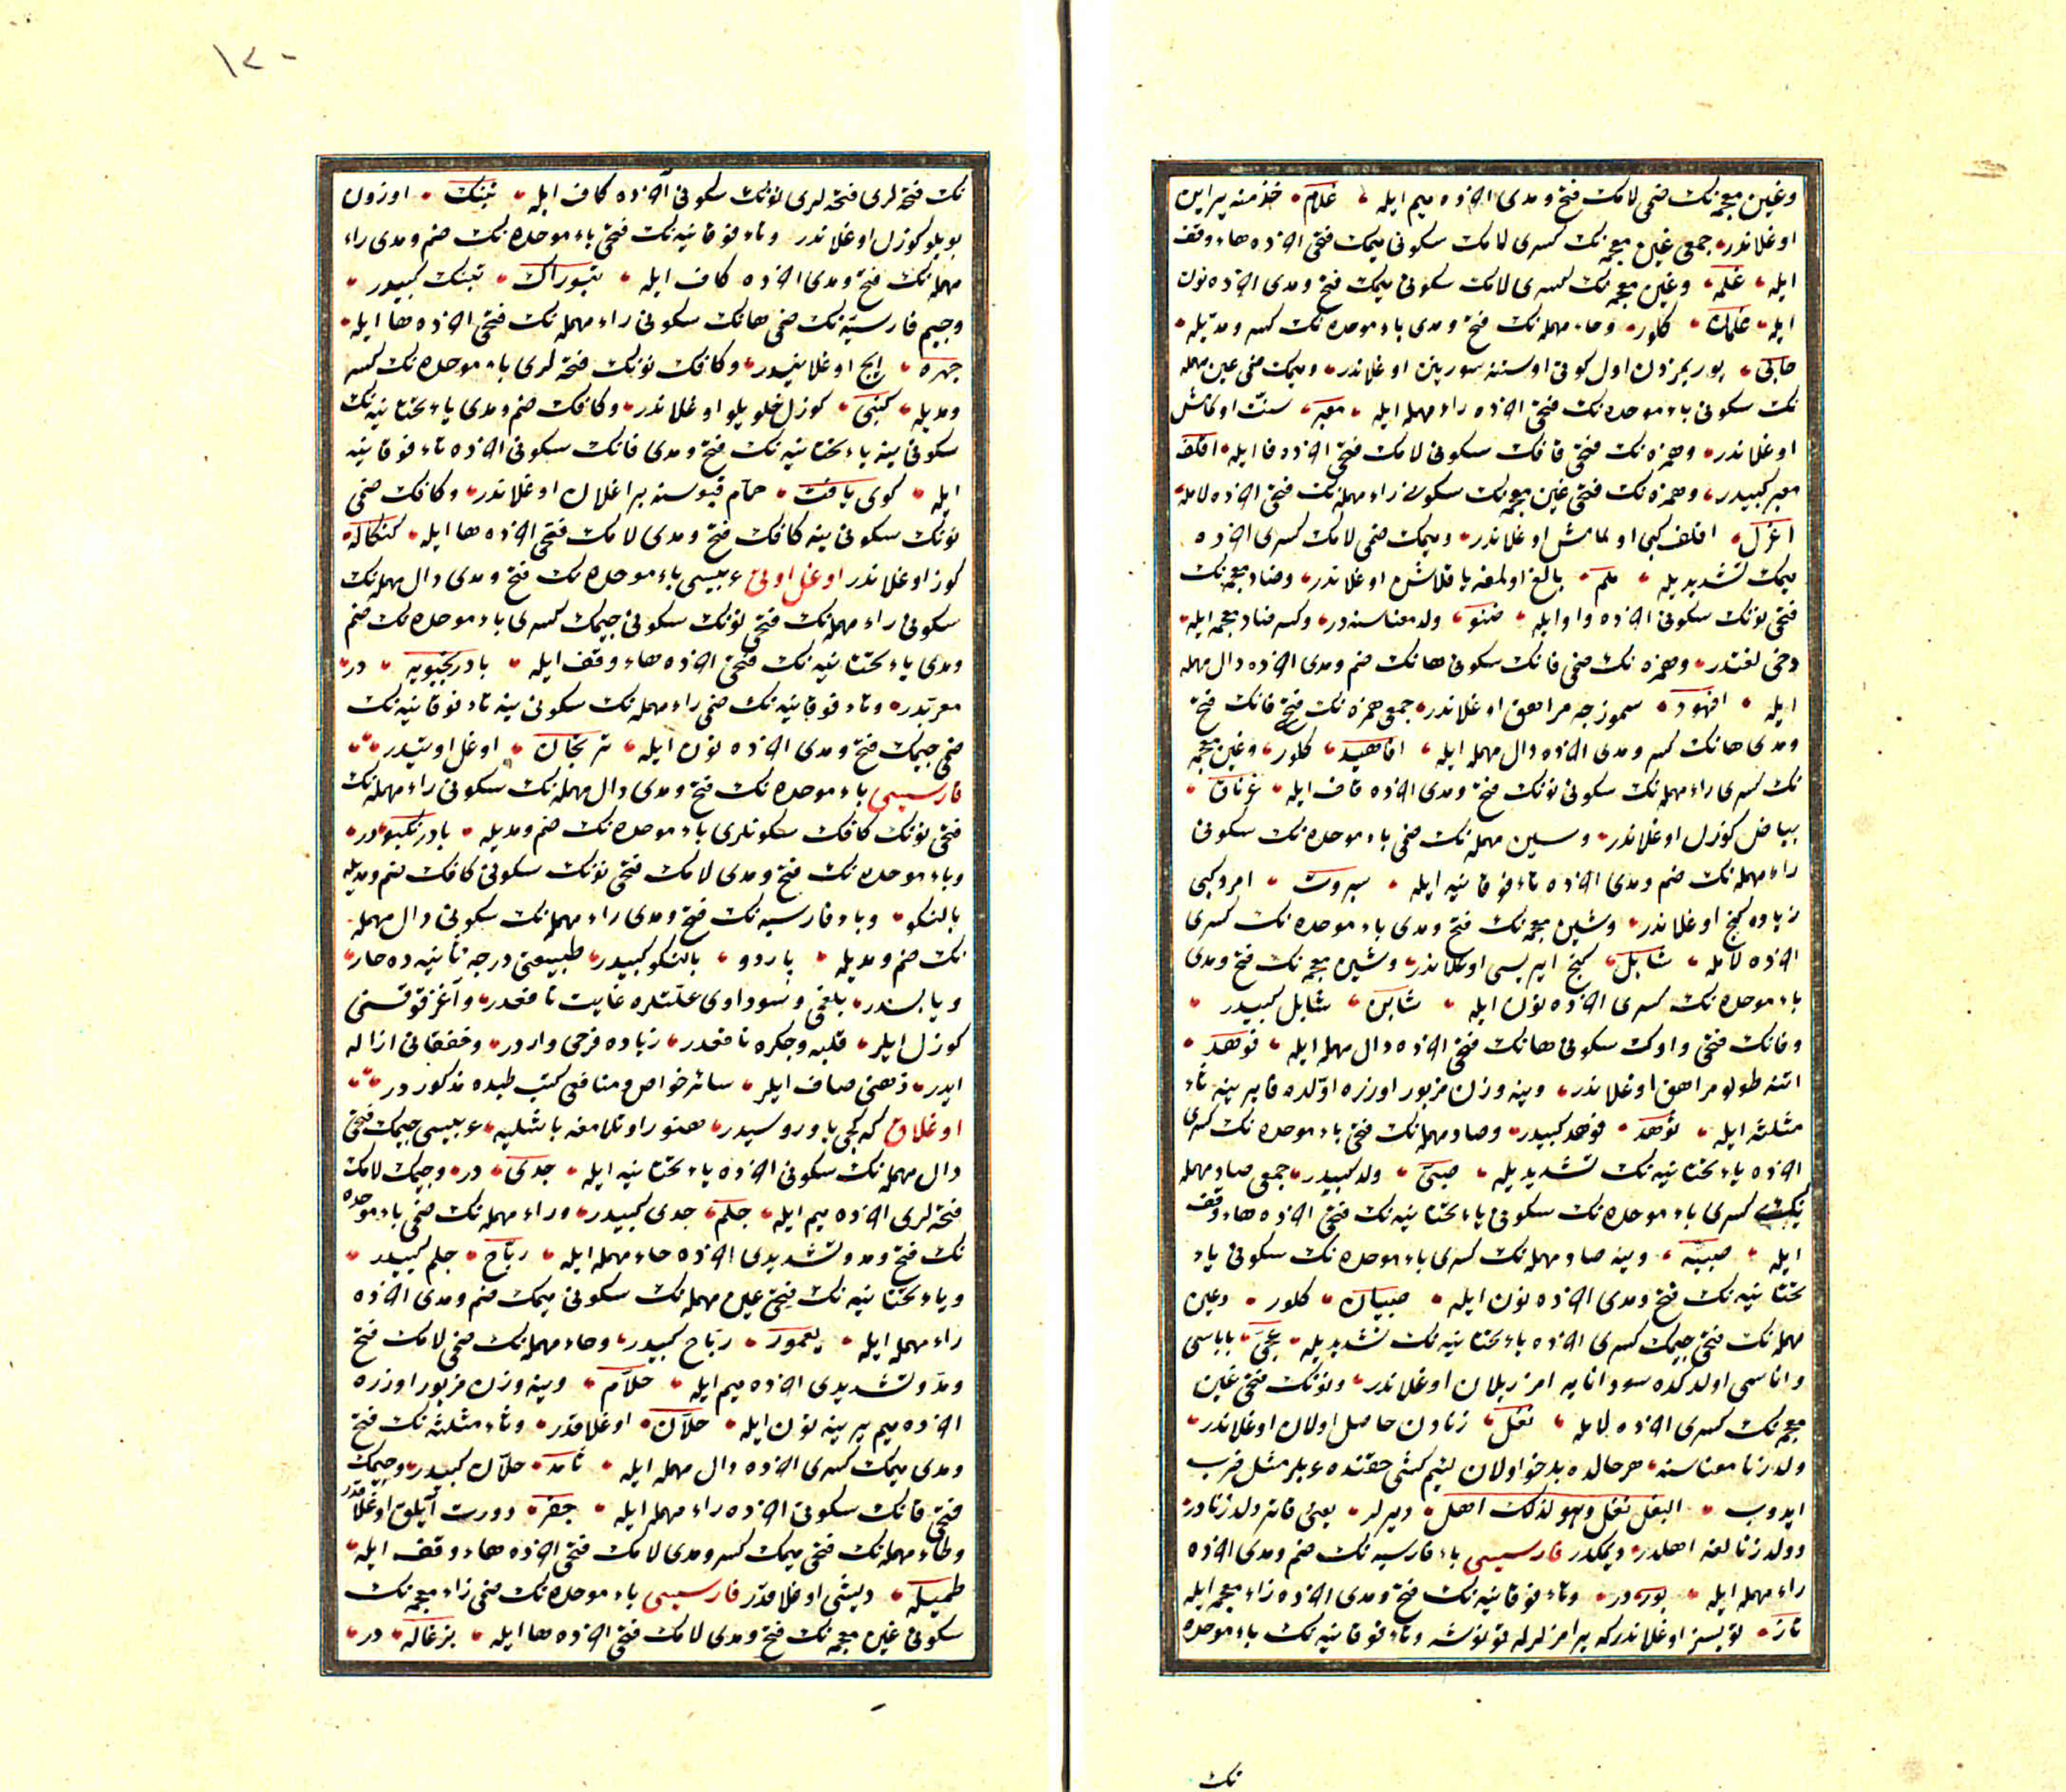 وغین معجمه‌نک ضمی لامک فتح و مدی آخرنده میم ایله غلام خذمته یراین
اوغلاندر جمعی غین معجمه‌نک کسری لامک سکونی میمک فتحی آخرنده هاء وقف
ایله غلمه وغین معجمه‌نک کسری لامک سکونی میمک فتح و مدی آخرنده نون
ایله غلمان کلور وحاء مهمله‌نک فتح و مدی باء موحده‌نک کسر و مدیله
حابی یوریمزدن اول کوتی اوستنه سورینن اوغلاندر ومیمک ضمی عین مهمله
نک سکونی باء موحده‌نک فتحی آخرنده راء مهمله ایله معبر سنت اولمامش
اوغلاندر وهمزه‌نک فتحی قافک سکونی لامک فتحی آخرنده فا ایله اقلف
معبر کبیدر وهمزه‌نک فتحی غین معجمه‌نک سکونی راء مهمله‌نک فتحی آخرنده لامله
اغرل اقلف کبی اولمامش اوغلاندر ومیمک ضمی لامک کسری آخرنده
میمک تشدیدیله ملم بالغ اولمغه یاقلاشن اوغلاندر وضاد معجمه‌نک
فتحی نونک سکونی آخرنده واو ایله ضنو ولد معناسنه‌در وکسر ضاد معجمه ایله
دخی لغتدر وهمزه‌نک ضمی فانک سکونی هانک ضم و مدی آخرنده دال مهمله
ایله افهود سموزجه مراهق اوغلاندر جمعی همزه‌نک فتح فانک فتح
و مدی هانک کسر و مدی آخرنده دال مهمله ایله افاهید کلور وغین معجمه
نک کسری راء مهمله‌نک سکونی نونک فتح و مدی آخرنده قاف ایله غرناق
بیاض کوزل اوغلاندر وسین مهمله‌نک ضمی باء موحده‌نک سکونی
راء مهمله‌نک ضم و مدی آخرنده تاء فوقانیه ایله سبروت امرد کبی
زیاده کنج اوغلاندر وشین معجمه‌نک فتح و مدی باء موحده‌نک کسری
آخرنده لامله شابل کنج ایریسی اوغلاندر وشین معجمه‌نک فتح و مدی
باء موحده‌نک کسری آخرنده نون ایله شابن شابل کبیدر
وفانک فتحی واوک سکونی هانک فتحی آخرنده دال مهمله ایله فوهد
اتنه طولو مراهق اوغلاندر وینه وزن مزبور اوزره اولده فا یرینه ثاء
مثلثه ایله ثوهد فوهد کبیدر وصاد مهمله‌نک فتحی باء موحده‌نک کسری
آخرنده یاء تحتانیه‌نک تشدیدیله صبی ولد کبیدر جمعی صاد مهمله
نک کسری باء موحده‌نک سکونی یاء تحتانیه‌نک فتحی آخرنده هاء وقف
ایله صبیه وینه صاد مهمله‌نک کسری باء موحده‌نک سکونی یاء
تحتانیه‌نک فتح و مدی آخرنده نون ایله صبیان کلور وعین
مهمله‌نک فتحی جیمک کسری آخرنده یاء تحتانیه‌نک تشدیدیله عجی باباسی
واناسی اولدکده سود انایه امزریلان اوغلاندر ونونک فتحی غین
معجمه‌نک کسری آخرنده لامله نغل زنادن حاصل اولان اوغلاندر
ولد زنا معناسنه هر حالده بدخو اولان لئیم کشی حقنده عربلر مثل ضرب
ایدوب البغل نغل وهو لذلک اهل دیرلر یعنی قاتر ولد زنادر
وولد زنالغه اهلدر دیمکدر فارسیسی باء فارسیه‌نک ضم و مدی آخرنده
راء مهمله ایله پور در وتاء فوقانیه‌نک فتح و مدی آخرنده زاء معجمه ایله
تاز تویسز اوغلاندرکه یرامزلرله قونوشه وتاء فوقانیه‌نک باء موحده
نک
١٢٠
نک فتحه‌لری فتحه‌لری نونک سکونی آخرنده کاف ایله تبنک اوزون
بویلو کوزل اوغلاندر وتاء فوقانیه‌نک فتحی باء موحده‌نک ضم و مدی راء
مهمله‌نک فتح و مدی آخرنده کاف ایله تبوراک تبنک کبیدر
وجیم فارسیه‌نک ضمی هانک سکونی راء مهمله‌نک فتحی آخرنده ها ایله
چهره ایچ اوغلانیدر وکافک نونک فتحه‌لری باء موحده‌نک کسر
و مدیله کنبی کوزل خلویلو اوغلاندر وکافک ضم و مدی یاء تحتانیه‌نک
سکونی ینه یاء تحتانیه‌نک فتح و مدی فانک سکونی آخرنده تاء فوقانیه
ایله کوی یافت حمام قپوسنه براغلان اوغلاندر وکافک ضمی
نونک سکونی ینه کافک فتح و مدی لامک فتحی آخرنده ها ایله کنکاله
کوز اوغلاندر اوغل اوتی عربیسی باء موحده‌نک فتح و مدی دال مهمله‌نک
سکونی راء مهمله‌نک فتحی نونک سکونی جیمک کسری باء موحده‌نک ضم
و مدی یاء تحتانیه‌نک فتحی آخرنده هاء وقف ایله بادرنجبویه در
معربدر وتاء فوقانیه‌نک ضمی راء مهمله‌نک سکونی ینه تاء فوقانیه‌نک
ضمی جیمک فتح و مدی آخرنده نون ایله ترنجان اوغل اوتیدر
فارسیسی باء موحده‌نک فتح و مدی دال مهمله‌نک سکونی راء مهمله‌نک
فتحی نونک کافک سکونلری باء موحده‌نک ضم و مدیله بادرنکبو در
وباء موحده‌نک فتح و مدی لامک فتحی نونک سکونی کافک ضم و مدیله
بالنکو وباء فارسیه‌نک فتح و مدی راء مهمله‌نک سکونی دال مهمله
نک ضم و مدیله پاردو بالنکو کبیدر طبیعتی درجه ثانیه‌ده حار
ویابسدر بلغمی وسوداوی علتلره غایت نافعدر وآغز قوقسنی
کوزل ایلر قلبه وجکره نافعدر زیاده فرحی واردر وخفقانی ازاله
ایدر ذهنی صاف ایلر سائر خواص و منافعی کتب طبده مذکور در
اوغلاق که کچی یاوروسیدر هنوز اوتلامغه باشلیه عربیسی جیمک فتحی
دال مهمله‌نک سکونی آخرنده یاء تحتانیه ایله جدی در وجیمک لامک
فتحه‌لری آخرنده میم ایله جلم جدی کبیدر وراء مهمله‌نک ضمی باء موحده
نک فتح و مد و تشدیدی آخرنده حاء مهمله ایله رباح جلم کبیدر
ویاء تحتانیه‌نک فتحی عین مهمله‌نک سکونی میمک ضم و مدی آخرنده
راء مهمله ایله یعمور رباح کبیدر وحاء مهمله‌نک ضمی لامک فتح
و مد و تشدیدی آخرنده میم ایله حلام وینه وزن مزبور اوزره
آخرنده میم یرینه نون ایله حلان اوغلاقدر وثاء مثلثه‌نک فتح
و مدی میمک کسری آخرنده دال مهمله ایله ثامد حلان کبیدر وجیمک
فتحی فانک سکونی آخرنده راء مهمله ایله جفر دورت آیلق اوغلاقدر
وطاء مهمله‌نک فتحی میمک کسر و مدی لامک فتحی آخرنده هاء وقف ایله
طمیله دیشی اوغلاقدر فارسیسی باء موحده‌نک ضمی زاء معجمه‌نک
سکونی غین معجمه‌نک فتح و مدی لامک فتحی آخرنده ها ایله بزغاله در